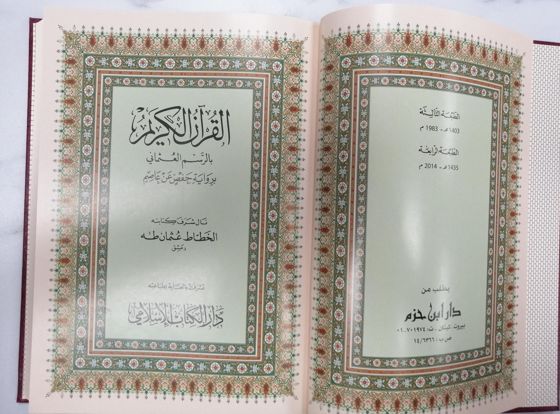 الطبعة الثالثة
1403 هـ - 1983 م
الطبعة الرابعة
1435 هـ - 2014 م
يطلب من
دار ابن حزم
بيروت - لبنان - ت: ٧٠١٩٧٤ - ٠١
ص ب: ١٤/٦٣٦٦
القرآن الكريم
بالرسم العثماني
برواية حفص عن عاصم
نال شرف كتابته
الخطاط عثمان طه
دمشق
دار الكتاب الإسلامي